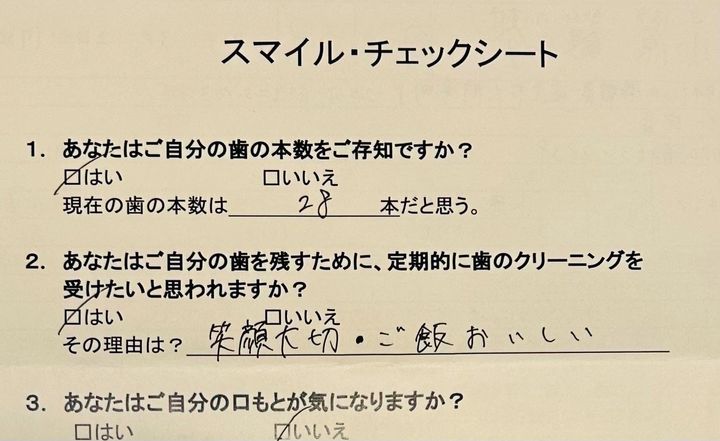 スマイル・チェックシート
1. あなたはご自分の歯の本数をご存知ですか?
□はい □いいえ
現在の歯の本数は 28 本だと思う。
2. あなたはご自分の歯を残すために、定期的に歯のクリーニングを
受けたいと思われますか?
□はい □いいえ
その理由は? 笑顔大切・ご飯おいしい
3. あなたはご自分の口もとが気になりますか?
□はい □いいえ